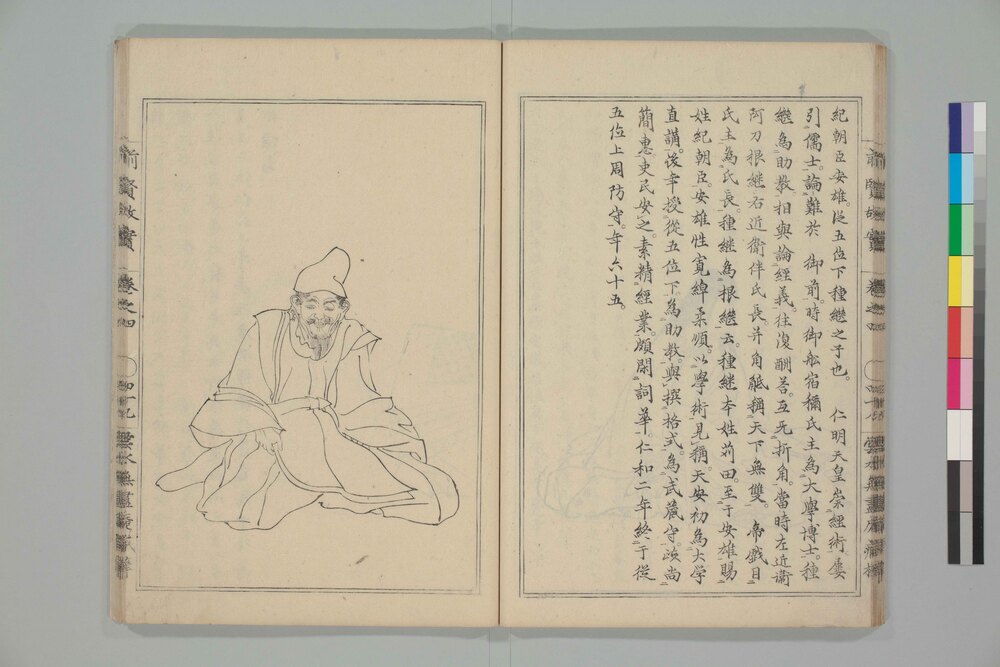 紀朝臣安雄。從五位下種繼之子也。　仁明天皇崇經術屢
引儒士。論難於　御前。時御船宿禰氏主為大學博士。種
繼為助教相與論經義。往復酬荅。互无折角。當時左近衛
阿刀根継右近衛伴氏長。并角觝稱天下無雙。　帝戯目
氏主為氏長。種継為根継云。種継本姓苅田。至于安雄賜
姓紀朝臣。安雄性寛綽柔順。以學術見稱。天安初為大学
直講。後年授從五位下為助教。與撰格式。為武藏守。政尚
簡惠。吏民安之。素精經業。頗閑詞華。仁和二年終于從
五位上周防守。年六十五。
前賢故實
卷之四